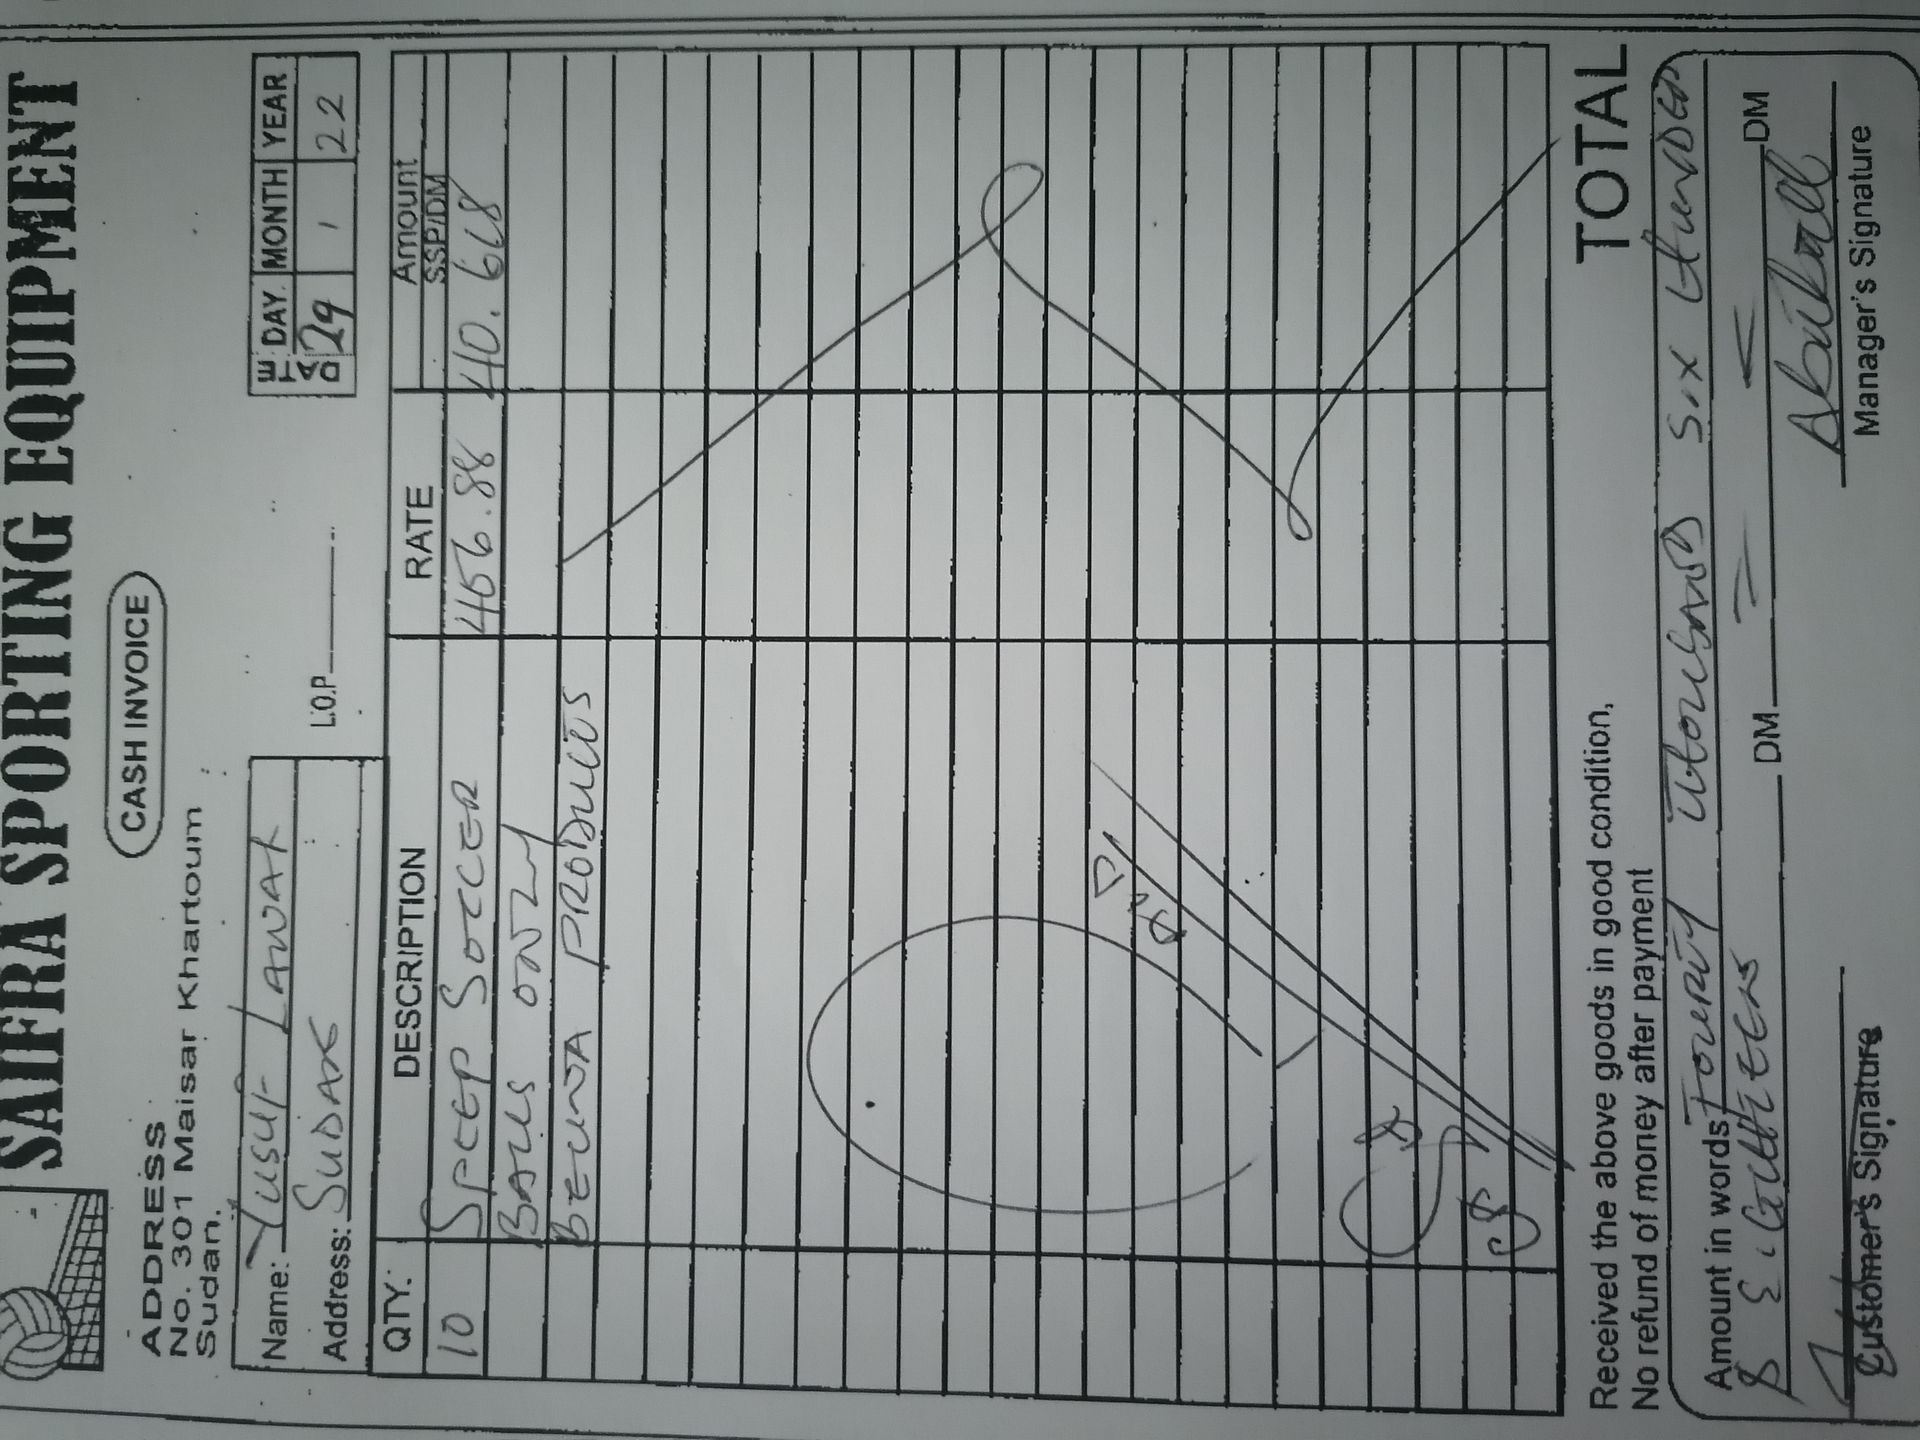 SAIFRA SPORTING EQUIPMENT
CASH INVOICE
ADDRESS
No. 301 Maisar Khartoum
Sudan.
DATE DAY. MONTH YEAR
29 1 22
Name: Yusuf Lawal
Address: SUDAN
L.O.P
QTY. DESCRIPTION RATE Amount
SSP/DM
10 SPEEP SOCCER 456.88 40.618
BALLS ONLY
PRODUCTS
TOTAL
Received the above goods in good condition,
No refund of money after payment
Amount in words Fourty thousand Six Hundred
& Eighteen DM DM
Customer's Signature Manager's Signature